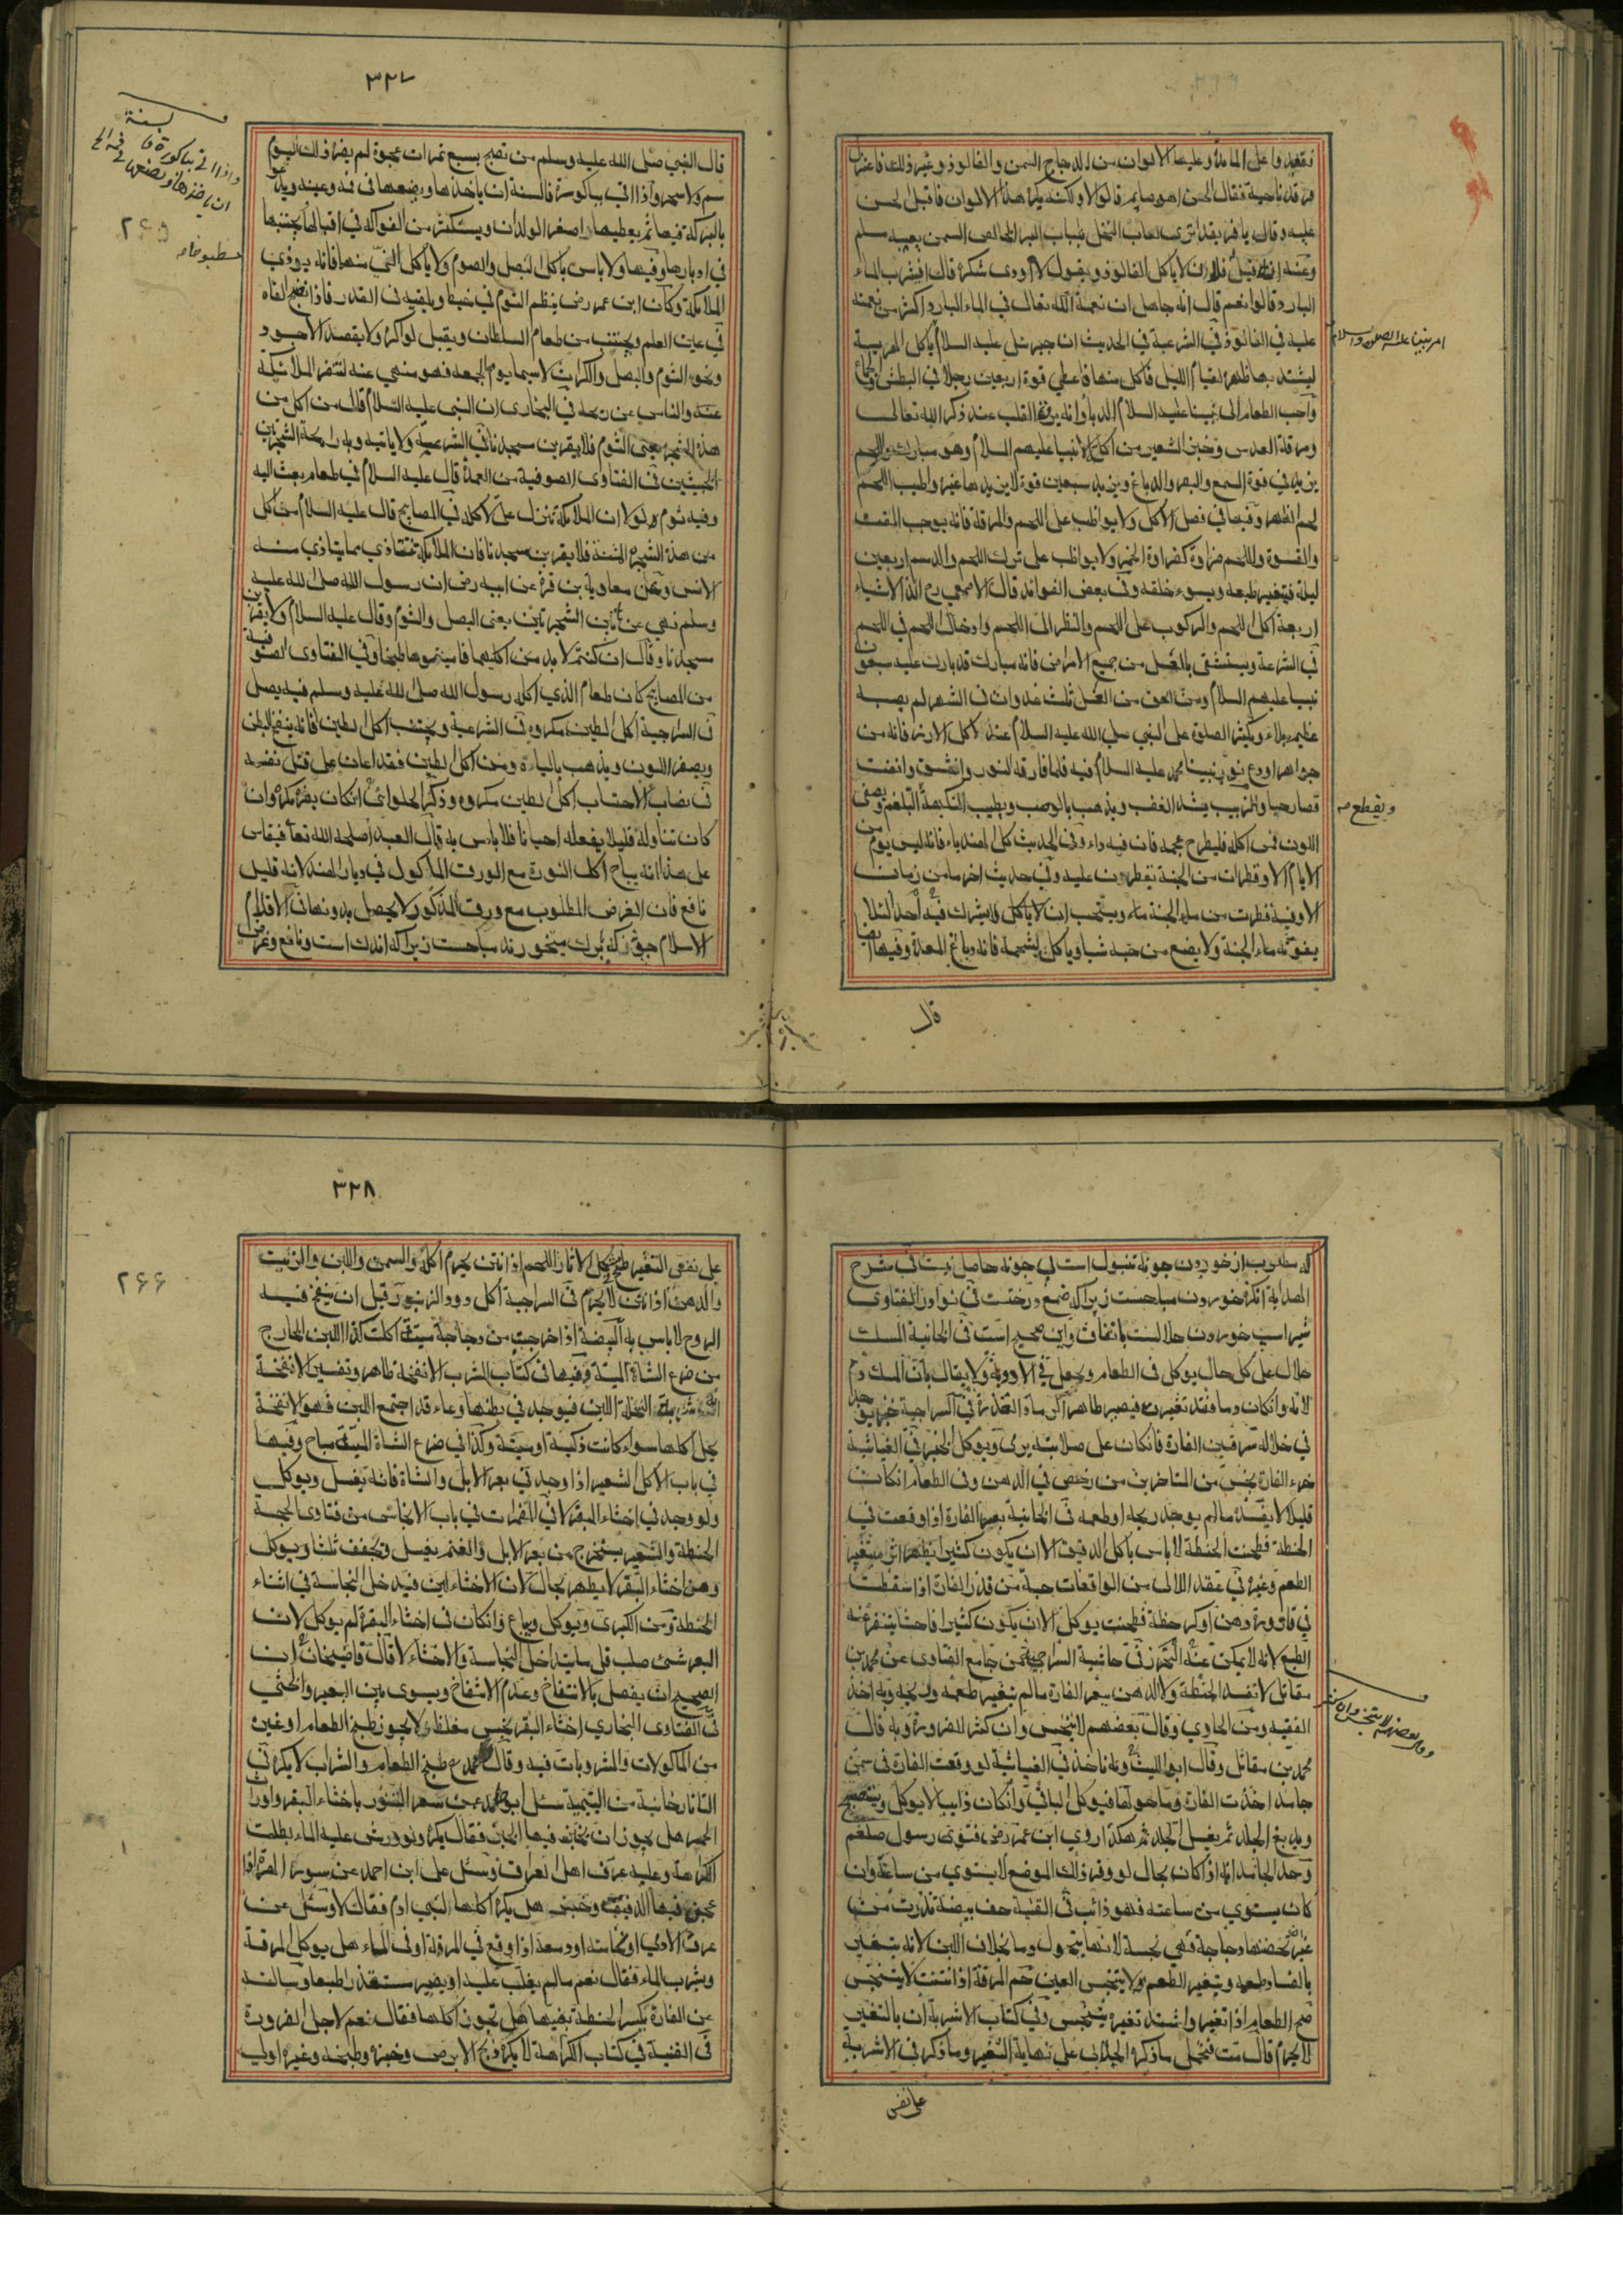 فقعدوا على المائدة وعليها الالوان من الدجاج السمن والفالوذ وغير ذلك فاعتزل
فرقد ناحية فقال الحسن اهو صايم قالوا لا ولكنه يكره هذه الالوان فاقبل الحسن
عليه وقال يا فريقد اترى لعاب النحل بلباب البر الخالص السمن يعيبه مسلم
وعنه انه قيل فلان لا ياكل الفالوذ ويقول لا اودى شكره قال افيشرب الماء
البارد قالوا نعم قال انه جاهل ان نعمة الله تعالى في الماء البارد اكثر من نعمته
عليه في الفالوذ في الشرعية في الحديث ان جبرئيل عليه السلام ياكل الهريسة
امر نبينا عليه الصلوة والسلام
ليشتد بها ظهره لقيام الليل فاكل منها فاعطي قوة اربعين رجلا في البطش والجماع
واحب الطعام الى نبينا عليه السلام الدباء وانه يرق القلب عند ذكر الله تعالى
ومرقة العدس وخبز الشعير من اكل الانبياء عليهم السلام وهو مبارك واللحم
يزيد في قوة السمع والبصر والدماغ ويزيد سبعين قوة لا يزيدها غيره واطيب اللحم
لحم الظهر وفيها في فصل الاكل ولا يواظب على اللحم والمرقة فانه يوجب المقت
والقسوة وللحم ضراوة كضراوة الخمر ولا يواظب على ترك اللحم والدسم اربعين
ليلة فيتغير طبعه ويسوء خلقه وفي بعض الفوائد قال الاصمعي رح الذ الاشياء
اربعة اكل اللحم والركوب على اللحم والنظر الى اللحم وادخال اللحم في اللحم
في الشرعة ويستشفى بالعسل من جميع الامراض فانه مبارك قد بارك عليه سبعون
نبيا عليهم السلام ومن لعق من العسل ثلث غدوات في الشهر لم يصبه
عظيم بلاء ويكثر الصلوة على النبي صلى الله عليه السلام عند اكل الارز فانه من
جواهر اودع نور نبينا محمد عليه السلام فيه فلما فارقه النور وانشق وانفت
فصار حبا والزبيب يشد العصب ويذهب بالوصب ويطيب النكهة البلغم ويصفى
ويقطع صح
اللون فمن اكله فليطرح عجمه فان فيه داء وفي الحديث كل الهندباء فانه ليس يوم من
الايام الا وقطرات من الجنة تقطرن عليه وفي حديث اخر ما من رمان
الا وفيه قطرت من ماء الجنة ماء ويستحب ان لا ياكل ولا يشرك فيه احد لئلا
يفوته ماء الجنة ولا يضع من حبه شيا وياكل بشحمه فانه دباغ المعدة وفيها ايضا
قال
٣٢٧
قال النبي صلى الله عليه وسلم من تصبح بسبع تمرات عجوة لم يضره ذلك اليوم
سم ولا سحر واذا اتي بباكورة فالسنة ان ياخذها ويضعها في فمه وعينه ويدعو
بالبركة فيها ثم يعطيها اصغر الولدان ويستكثر من الفواكه في اقبالها ويجتنبها
٢٦٥
في ادبارها وفيها ولا باس باكل البصل والصوم ولا ياكل الني منها فانه يوذي
الملائكة وكان ابن عمر رضى ينظم الثوم في خيط ويلقيه في القدر فاذا نضج القاه
في عين العلم ويجتنب من طعام السلطان ويقبل لو اكره ولا يقصد الاجود
ونحو الثوم والبصل والكراث لاسيما يوم الجمعة فهو منهي عنه لتنفر الملائكة
عنه والناس عن ريحه في البخارى ان النبى عليه السلام قال من اكل من
هذه الشجرة يعنى الثوم فلا يقربن مسجدنا في الشرعية ولا ياتيه وبه رائحة الشجرتين
الخبيثين في الفتاوى الصوفية من العمدة قال عليه السلام في طعام بعث اليه
وفيه ثوم ولولا ان الملائكة تنزل على لاكله في المصابيح قال عليه السلام من اكل
من هذه الشجرة المنتنة فلا يقربن مسجدنا فان الملائكة تتاذى مما يتاذي منه
الانس وعن معاوية بن قرة عن ابيه رضى ان رسول الله صلى الله عليه
وسلم نهي عن هاتين الشجرتين يعنى البصل والثوم وقال عليه السلام ولا يقربن
مسجدنا وقال ان كنتم لا بد من اكليهما فاميتموهما طبخا وفي الفتاوى الصوفية
من المصابيح كان طعام الذي اكله رسول الله صلى الله عليه وسلم فيه بصل
في السراجية اكل الطين مكروه في الشرعية ويجتنب اكل الطين فانه ينفخ البطن
ويصفر اللون ويذهب بالباءة ومن اكل الطين فقد اعان على قتل نفسه
في نصاب الاحتساب اكل الطين مكروه وذكر الحلوائي ان كان يضره كره وان
كان تناوله قليلا يفعله احيانا فلا باس به قال العبد اصلحه الله تعا فيقاس
على هذا انه يباح اكل النورة مع الورق الماكول في ديار الهند لانه قليل
نافع فان الغرض المطلوب مع ورق المذكور لا يحصل بدونها في الاقلام
الاسلام جونه كه ببرك ميخورند مباحست زيراكه اندك است ونافع وغرض
كه مطلوب از خوردن جونه تنبول است بى جونه حاصل نيست في شرح
الهداية انكزه خوردن مباحست زيراكه صمغ درختت في نوادر الفتاوى
شير اسب خوردن حلالست باتفاق واين صحيح است في الخانية المسك
حلال على كل حال يوكل في الطعام ويجعل في الادوية ولا يقال بان المسك دم
لانه وان كان دما فقد تغير فيصير طاهرا كرماد العذرة في السراجية خبز يوجد
في خلاله سرقين الفارة فان كان على صلابته يرمى ويوكل الخبز في الغياثية
خرء الفارة نجس من المتاخرين من رخص في الدهن وفى الطعام ان كان
قليلا لا يفسد ما لم يوجد ريحه او طعمه في الخانية بعر الفارة اذا وقعت في
الحنطة فطحنت الحنطة لا باس باكل الدقيق الا ان يكون كثيرا يظهر اثره بتغير
الطعم وغيره في عقد اللالى من الواقعات حبة من قذر الفارة اذا سقطت
في قارورة دهن او كر حنطة فطحنت يوكل الا ان يكون كثيرا فاحشا يتنفر عنه
الطبع لانه لا يمكن عنه التحرز في حاشية السراجية من جامع الفتاوى عن محمد بن
مقاتل لا تفسد الحنطة ولا الدهن ببعر الفارة ما لم يتغير طعمه ولا ريحه وبه اخذ
الفقيه ومن الحاوي وقال بعضهم لا يتنجس وان كثر للضرورة وبه قال
وقال بعضهم لا يتنجس وان كثر
محمد بن مقاتل وقال ابو الليث وبه ناخذ في الغياثية لو وقعت الفارة في سمن
جامد اخذت الفارة وما حولها فيوكل الباقي وان كان ذايبا لا يوكل ويستصبح
ويدبغ الجلد ثم يغسل الجلد ثم هكذا روي ابن عمر رضى فتوى رسول صلعم
وحد الجامد انه اذا كان بحال لو قور ذلك الموضع لا يستوي من ساعته وان
كان يستوي من ساعته فهو ذائب في القنية حف بيضة مذرت من
غير تحضنها دجاجة فهي نجسة لانها يتحول دما بخلاف اللبن لانه يتغير
بالفساد طعمه ويتغير الطعم ولا يتنجس العين حم المرقة اذا انتنت لا يتنجس
صح الطعام اذا تغير واشتد تغيره يتنجس وفي كتاب الاشربة ان بالتغير
لا يحرم قال مت فتحمل ما ذكره الجلابى على نهاية التغير وما ذكر في الاشربة
على نفس
٣٢٨
على نفس التغير طح شكل الاثار اللحم اذا انتن يحرم اكله والسمن واللبن والزيت
٢٦٦
والدهن اذا انتن لا يحرم في السراجية اكل دود الزنبور قبل ان ينفخ فيه
الروح لا باس به البيضة اذا خرجت من دجاجة ميتة اكلت كذا اللبن الخارج
من ضرع الشاة الميتة وفيها في كتاب الشرب الانفخة طاهرة وتفسير الانفخة
السخلة اللبن فيوجد في بطنها وعاء قد اجتمع اللبن فهو الانفخة
يحل اكلها سواء كانت ذكية او ميتة وكذا في ضرع الشاة الميتة مباح وفيها
في باب الاكل الشعير اذا وجد في بعر الابل والشاة فانه يغسل ويوكل
ولو وجد في اخثاء البقر لا في المضمرات في باب الانجاس من فتاوى الحجة
الحنطة والشعير يستخرج من بعر الابل والغنم يغسل ويجفف ثلثا ويوكل
ومن اخثاء البقر لا يطهر بحال لان الاخثاء لين فيدخل النجاسة في اثناء
الحنطة ومن الكبرى ويوكل ويباع وان كان في اخثاء البقرة لم يوكل لان
البعر شئ صلب قل ما يتداخل النجاسة والاخثاء لا قال قاضيخان ان
الصحيح ان يفصل بالانتفاخ وعدم الانتفاخ ويسوى بين البعير والخثي
في الفتاوى البخاري اخثاء البقر نجس مغلظة لا يجوز طبخ الطعام او غيره
من الماكولات والمشروبات فيه وقال محمد رح طبخ الطعام والشراب لا يكره في
التاتارخانية من اليتيمة سئل ابو حامد عن سجر التنور باخثاء البقر واوراث
الحمير هل يجوز ان يخبز فيها الخبز فقال يكره ولو ورش عليه الماء بطلت
الكراهة وعليه عرف اهل العراق وسئل على ابن احمد عن سورة الهرة اذا
عجن فيها الدقيق وخبز هل يكره اكلها لبني ادم فقال لا وسئل عن
عرق الادمي او نخامته او دمعه اذا وقع في المرقة او في الماء هل يوكل المرقة
ويشرب الماء فقال نعم ما لم يغلب عليه او يصير مستقذرا طبعا وسالته
عن الفارة يكسر الحنطة بفيها هل تجوز اكلها فقال نعم لاجل الضرورة
في القنية في كتاب الكراهة لا يكره ذبح الابرص وخبزه وطبخه وغيره اولى